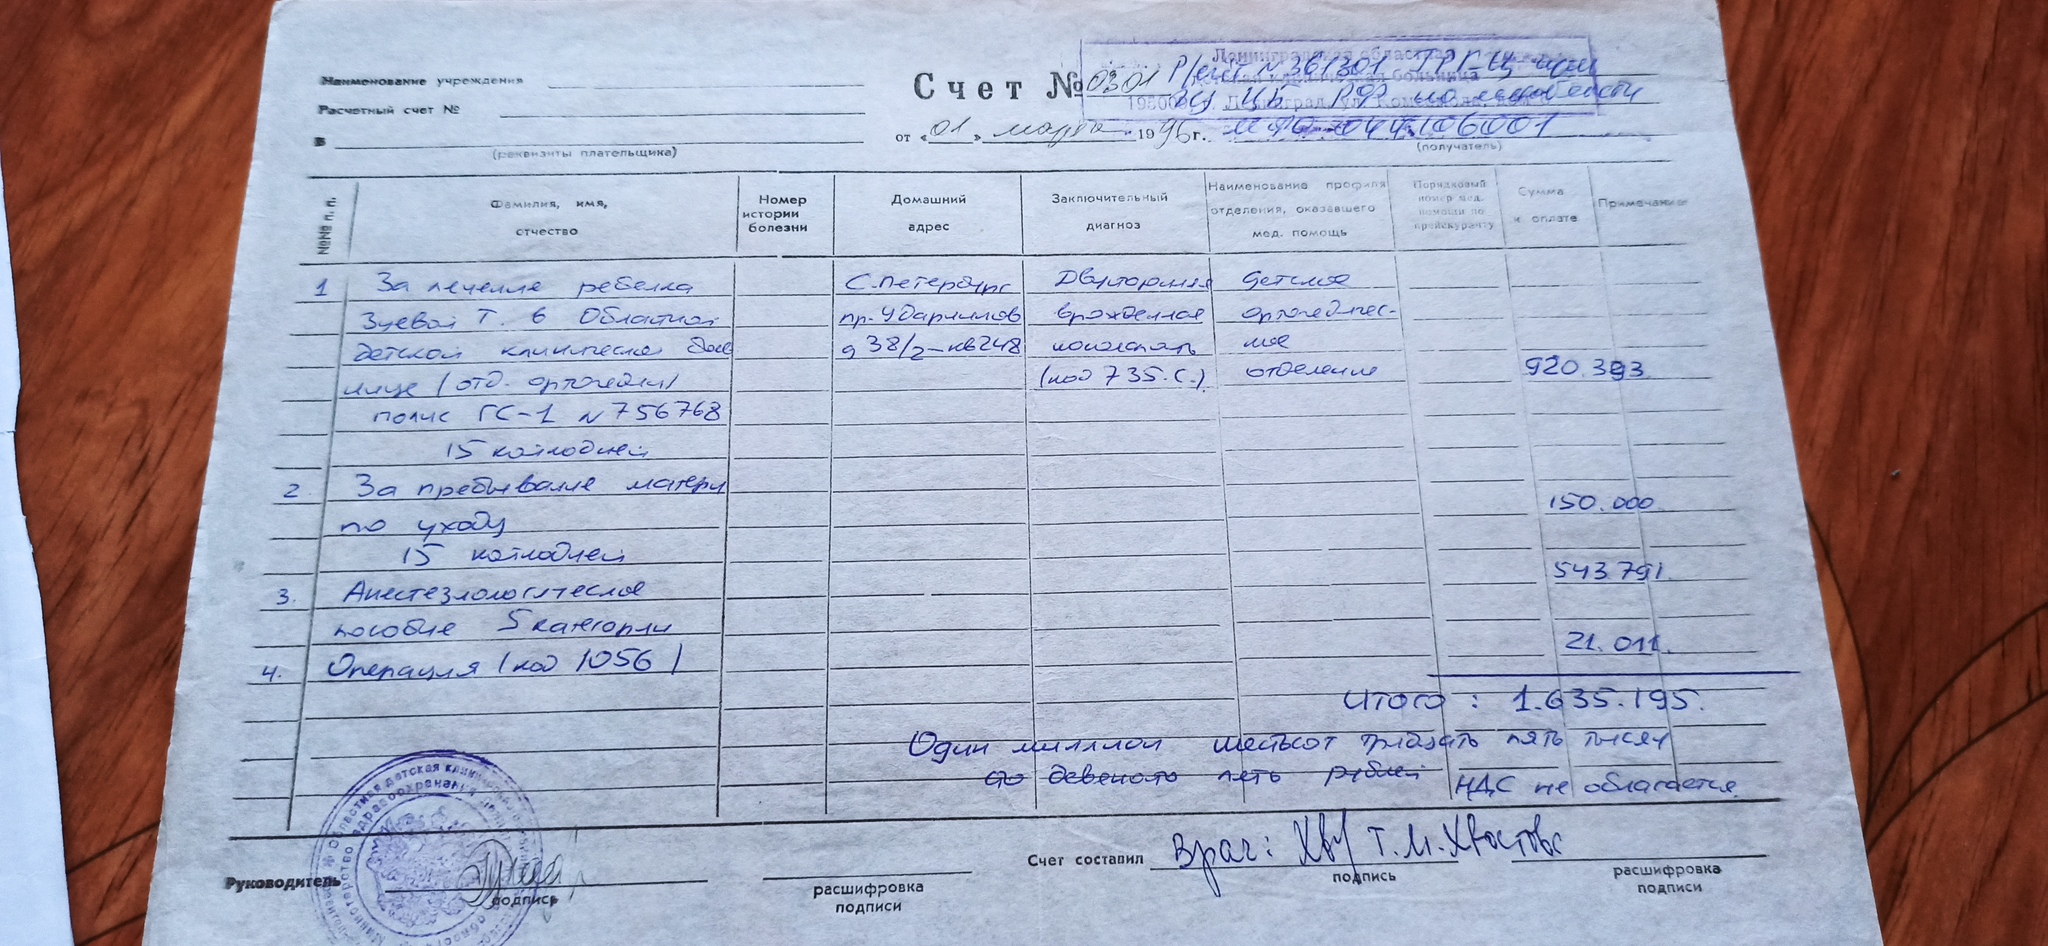 Наименование учреждения
Расчетный счет №
В
(реквизиты плательщика)
Счет № 0301
от «01» марта 1996 г.
Ленинградская областная
больница
Р/счет N 361301
РФ по
МФО 044106001
(получатель)
№№ п. п.
Фамилия, имя, отчество
Номер истории болезни
Домашний адрес
Заключительный диагноз
Наименование профиля отделения, оказавшего мед. помощь
Порядковый номер мед. помощи по прейскуранту
Сумма к оплате
Примечание
1 За лечение ребенка С.Петербург Двуторонняя детское
Зуевой Т. в Областной пр. Ударников врожденная ортопедичес-
детской клинической боль д 38/2-кв248 косолапость кое
нице (отд. ортопедии) (код 735.С.) отделение 920.393
полис ГС-1 N 756768
15 койкодней
2. За пребывание матери 150.000
по уходу
15 койкодней
3. Анестезиологическое 543.791.
пособие 5 категории
4. Операция (код 1056) 21.011.
Итого: 1.635.195.
Один миллион шестьсот тридцать пять тысяч
сто девеносто пять рублей НДС не облагается
Руководитель
подпись
расшифровка подписи
Счет составил Врач: Т.М. Хвостова
подпись
расшифровка подписи